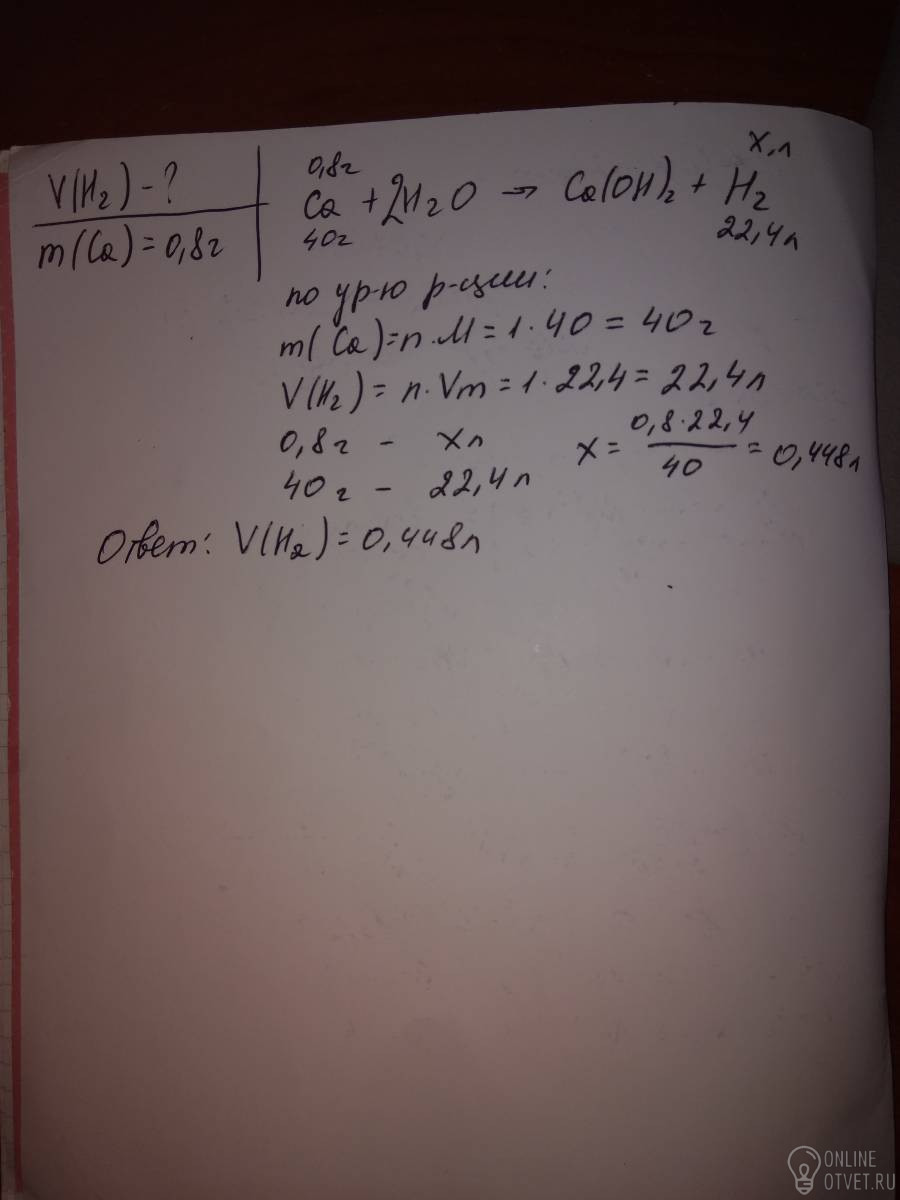 V(H₂) - ?
m(Ca) = 0,8г
0,8г х.л
Ca + 2H₂O → Ca(OH)₂ + H₂
40г 22,4л
по ур-ю р-ции:
m(Ca) = n · M = 1 · 40 = 40г
V(H₂) = n · Vm = 1 · 22,4 = 22,4л
0,8г - хл
40г - 22,4л
x = 0,8·22,4 / 40 = 0,448л
Ответ: V(H₂) = 0,448л
ONLINE
OTVET.RU